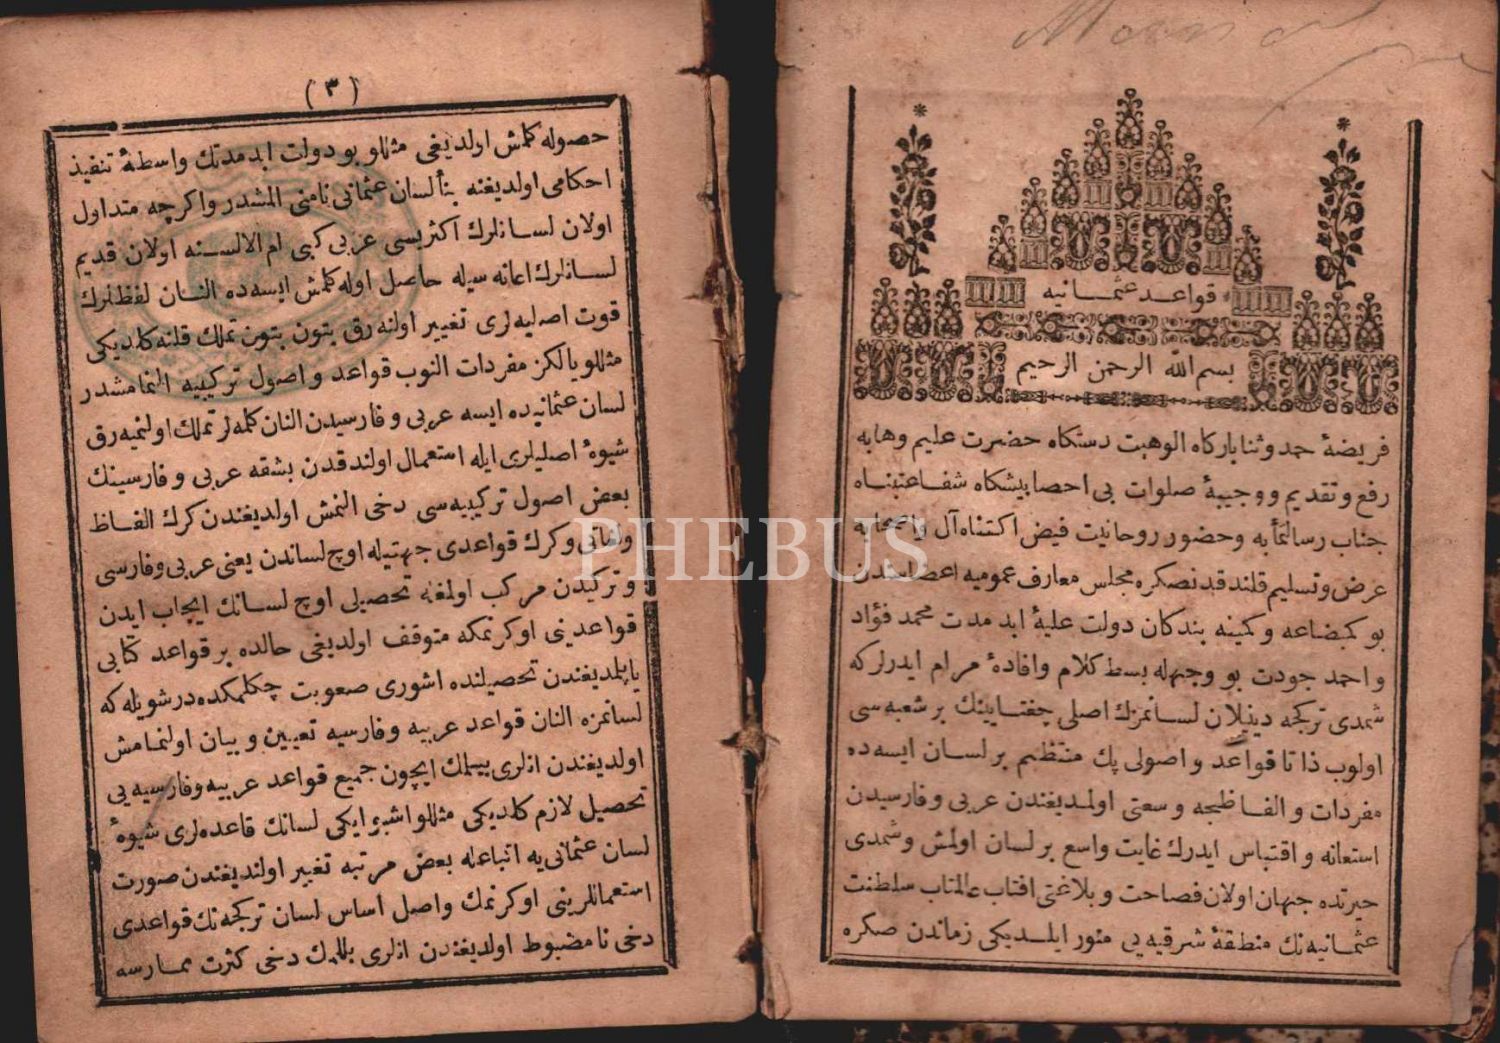 قواعد عثمانيه
بسم الله الرحمن الرحيم
فريضهٔ حمد وثنا باركاه الوهيت دستكاه حضرت عليم وهابه
رفع وتقديم ووجيبهٔ صلوات بى احصا پيشكاه شفاعتپناه
جناب رسالتمأبه وحضور روحانيت فيض اكتناه آل واصحابه
عرض وتسليم قلندقدنصكره مجلس معارف عموميه اعضاسندن
بو كم بضاعه وكمينه بندكان دولت عليهٔ ابد مدت محمد فؤاد
واحمد جودت بو وجهله بسط كلام وافادهٔ مرام ايدرلركه
شمدى تركجه دينيلان لسانمزك اصلى چغتاينك بر شعبه سى
اولوب ذاتا قواعد واصولى پك منتظم بر لسان ايسه ده
مفردات والفاظجه وسعتى اولمديغندن عربى وفارسيدن
استعانه واقتباس ايدرك غايت واسع بر لسان اولمش وشمدى
حيرتده جهان اولان فصاحت وبلاغتى افتاب عالمتاب سلطنت
عثمانيه نك منطقهٔ شرقيه يى منور ايلديكى زماندن صكره
(٣)
حصوله كلمش اولديغى مثللو بو دولت ابد مدتك واسطهٔ تنفيذ
احكامى اولديغنه بنأ لسان عثمانى نامنى المشدر واكرچه متداول
اولان لسانلرك اكثريسى عربى كبى ام الالسنه اولان قديم
لسانلرك اعانه سيله حاصل اوله كلمش ايسه ده النان لفظلرك
قوت اصليه لرى تغيير اولنه رق بتون بتون تملك قلنه كلديكى
مثللو يالكز مفردات النوب قواعد واصول تركيبيه النمامشدر
لسان عثمانيده ايسه عربى وفارسيدن النان كلمه لر تملك اولنميه رق
شيوهٔ اصليلرى ايله استعمال اولندقدن بشقه عربى وفارسينك
بعض اصول تركيبيه سى دخى النمش اولديغندن كرك الفاظ
ولغاتى وكرك قواعدى جهتيله اوچ لساندن يعنى عربى وفارسى
وتركيدن مركب اولمغله تحصيلى اوچ لسانك ايجاب ايدن
قواعدينى اوكرنمكه متوقف اولديغى حالده بر قواعد كتابى
ياپلمديغندن تحصيلنده اشورى صعوبت چكلمكده در شويله كه
لسانمزه النان قواعد عربيه وفارسيه تعيين وبيان اولنمامش
اولديغندن انلرى بيلمك ايچون جميع قواعد عربيه وفارسيه يى
تحصيل لازم كلديكى مثللو اشبو ايكى لسانك قاعده لرى شيوهٔ
لسان عثمانى يه اتباعله بعض مرتبه تغيير اولنديغندن صورت
استعماللرينى اوكرنمك واصل اساس لسان تركجه نك قواعدى
دخى نا مضبوط اولديغندن انلرى بللمك دخى كثرت ممارسه
PHEBUS